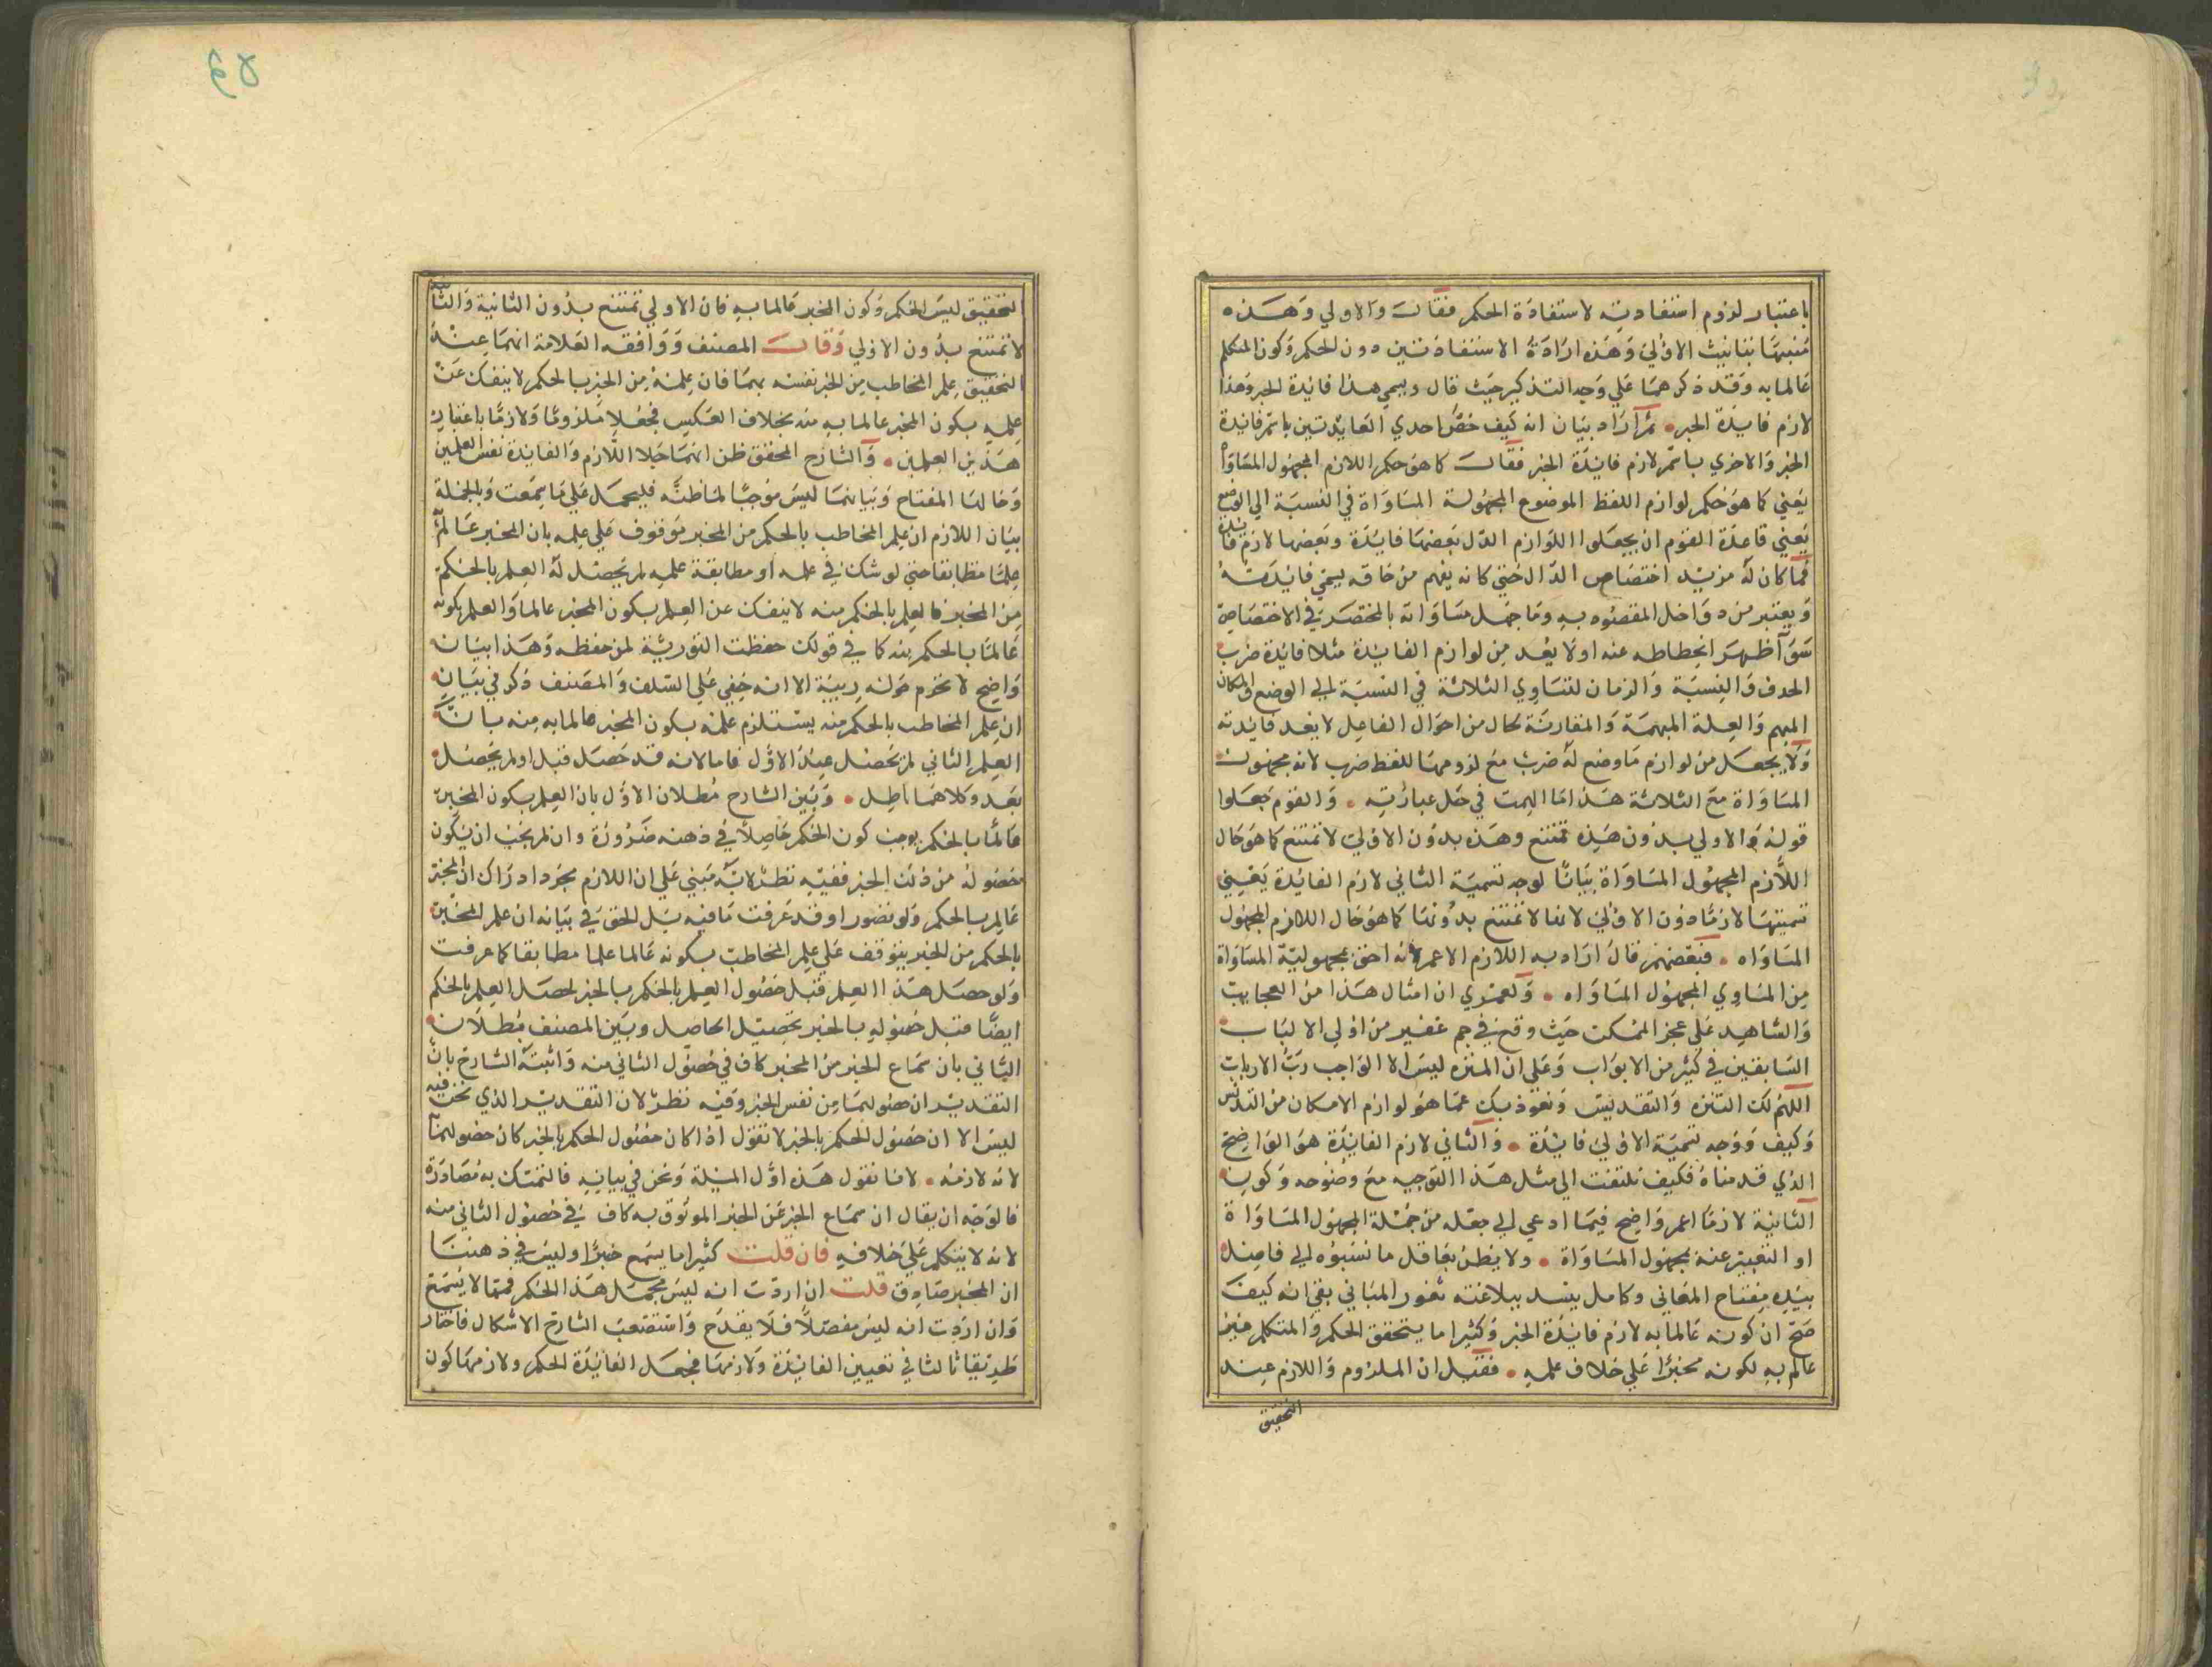 باعتبار لزوم استفادته لاستفادة الحكم فقال والاولي وهذه
منبها بتانيث الاولى وهذه ارادة الاستفادتين دون الحكم وكون المتكلم
عالما به وقد ذكرهما علي وجه التذكير حيث قال ويسمي هذا فائدة الخبر وهذا
لازم فائدة الخبر ثم اراد بيان انه كيف خص احدي الفائدتين باسم فائدة
الخبر والاخري باسم لازم فائدة الخبر فقال كما هو حكم اللازم المجهول المساواة
يعني كما هو حكم لوازم اللفظ الموضوع المجهولة المساواة في النسبة الي الوضع
يعني قاعدة القوم ان يجعلوا اللوازم الدل بعضها فائدة وبعضها لازم فائدة
فما كان له مزيد اختصاص الدال حتي كانه يفهم من حاقه يسمي فائدته
ويعتبر من دواخل المقصود به وما جهل مساواته بالمختصر في الاختصاص
اظهر انحطاطه عنه اولا يعد من لوازم الفائدة مثلا فائدة ضرب
الحدث والنسبة والزمان لتساوي الثلاثة في النسبة الي الوضع والمكان
المبهم والعلة المبهمة والمقارنة لحال من احوال الفاعل لا يعد فائدته
ولا يجعل من لوازم ما وضع له ضرب مع لزومها للفظ ضرب لانه مجهول
المساواة مع الثلاثة هذا ما الهمت في حل عبارته والقوم جعلوا
قوله والاولي بدون هذه تمتنع وهذه بدون الاولى لا تمتنع كما هو حال
اللازم المجهول المساواة بيانا لوجه تسمية الثاني لازم الفائدة يعني
تسميتها لازما دون الاولى لانها لا تمتنع بدونها كما هو حال اللازم المجهول
المساواه فبعضهم قال اراد به اللازم الاعم لانه احق بمجهولية المساواة
من المساوي المجهول المساواه ولعمري ان امثال هذا من العجايب
والشاهد علي عجز الممكن حيث وقع في جم غفير من اولي الالباب
السابقين في كثير من الابواب وعلي ان المنزه ليس الا الواجب رب الارباب
اللهم لك التنزه والتقديس ونعوذ بك عما هو لوازم الامكان من التدليس
وكيف ووجه تسمية الاولى فائدة والثاني لازم الفائدة هو الواضح
الذي قدمناه فكيف نلتفت الي مثل هذا التوجيه مع وضوحه وكون
الثانية لازما اعم واضح فيما ادعي الي جعله من جملة المجهول المساواة
او التعبير عنه بمجهول المساواة ولا يظن بعاقل ما نسبوه الي فاضل
بيده مفتاح المعاني وكامل يسد ببلاغته ثغور المباني بقي انه كيف
صح ان كونه عالما به لازم فائدة الخبر وكثيرا ما يتحقق الحكم والمتكلم غير
عالم به لكونه مخبرا علي خلاف علمه فقيل ان الملزوم واللازم عند
التحقيق
التحقيق ليس الحكم وكون المخبر عالما به فان الاولي تمتنع بدون الثانية والثانية
لا تمتنع بدون الاولي وقال المصنف ووافقه العلامة انهما عند
التحقيق علم المخاطب من الخبر نفسه بهما فان علمه من الخبر بالحكم لا ينفك عن
علمه بكون المخبر عالما به منه بخلاف العكس فجعلا ملزوما ولازما باعتبار
هذين العلمين والشارح المحقق ظن انهما جعلا اللازم والفائدة نفس العلمين
وخالفا المفتاح وبيانهما ليس موجبا لما ظنه فليحمل علي ما سمعت وبالجملة
بيان اللازم ان علم المخاطب بالحكم من المخبر موقوف علي علمه بان المخبر عالم
علما مطابقا حتي لو شك في علمه او مطابقة علمه لم يحصل له العلم بالحكم
من المخبر فالعلم بالحكم منه لا ينفك عن العلم بكون المخبر عالما والعلم بكونه
عالما بالحكم منه كما في قولك حفظت التورية لمن حفظه وهذا بيان
واضح لا تحرم حوله ريبة الا انه خفي علي السلف والمصنف ذكر في بيان
ان علم المخاطب بالحكم منه يستلزم علمه بكون المخبر عالما به منه بانه
العلم الثاني لم يحصل عند الاول فاما لانه قد حصل قبل او لم يحصل
بعد وكلاهما باطل وبين الشارح بطلان الاول بان العلم بكون المخبر
عالما بالحكم يوجب كون الحكم حاصلا في ذهنه ضرورة وان لم يجب ان يكون
حصوله من ذلك الخبر ففيه نظر لانه مبني علي ان اللازم مجرد ادراك ان المخبر
عالم بالحكم ولو تصورا وقد عرفت ما فيه بل الحق في بيانه ان علم المخبر
بالحكم من الخبر يتوقف علي علم المخاطب بكونه عالما علما مطابقا كما عرفت
ولو حصل هذا العلم قبل حصول العلم بالحكم بالخبر لحصل العلم بالحكم
ايضا قبل حصوله بالخبر تحصيل الحاصل وبين المصنف بطلان
الثاني بان سماع الخبر من المخبر كاف في حصول الثاني منه واثبته الشارح بان
التقدير ان حصولهما من نفس الخبر وفيه نظر لان التقدير الذي نحن فيه
ليس الا ان حصول الحكم بالخبر لا نقول اذا كان حصول الحكم بالخبر كان حصولهما
لانه لازمه لانا نقول هذه اول المسئلة ونحن في بيانه فالتمسك به مصادرة
فالوجه ان يقال ان سماع الخبر عن المخبر الموثوق به كاف في حصول الثاني منه
لانه لا يتكلم علي خلافه فان قلت كثيرا ما يسمع خبرا وليس في ذهننا
ان المخبر صادق قلت ان اردت انه ليس مجمل هذا الحكم فمما لا يسمع
وان اردت انه ليس مفصلا فلا يقدح واستصعب الشارح الاشكال فاختار
طريقا ثالثا في تعيين الفائدة ولازمها فجعل الفائدة الحكم ولازمها كون